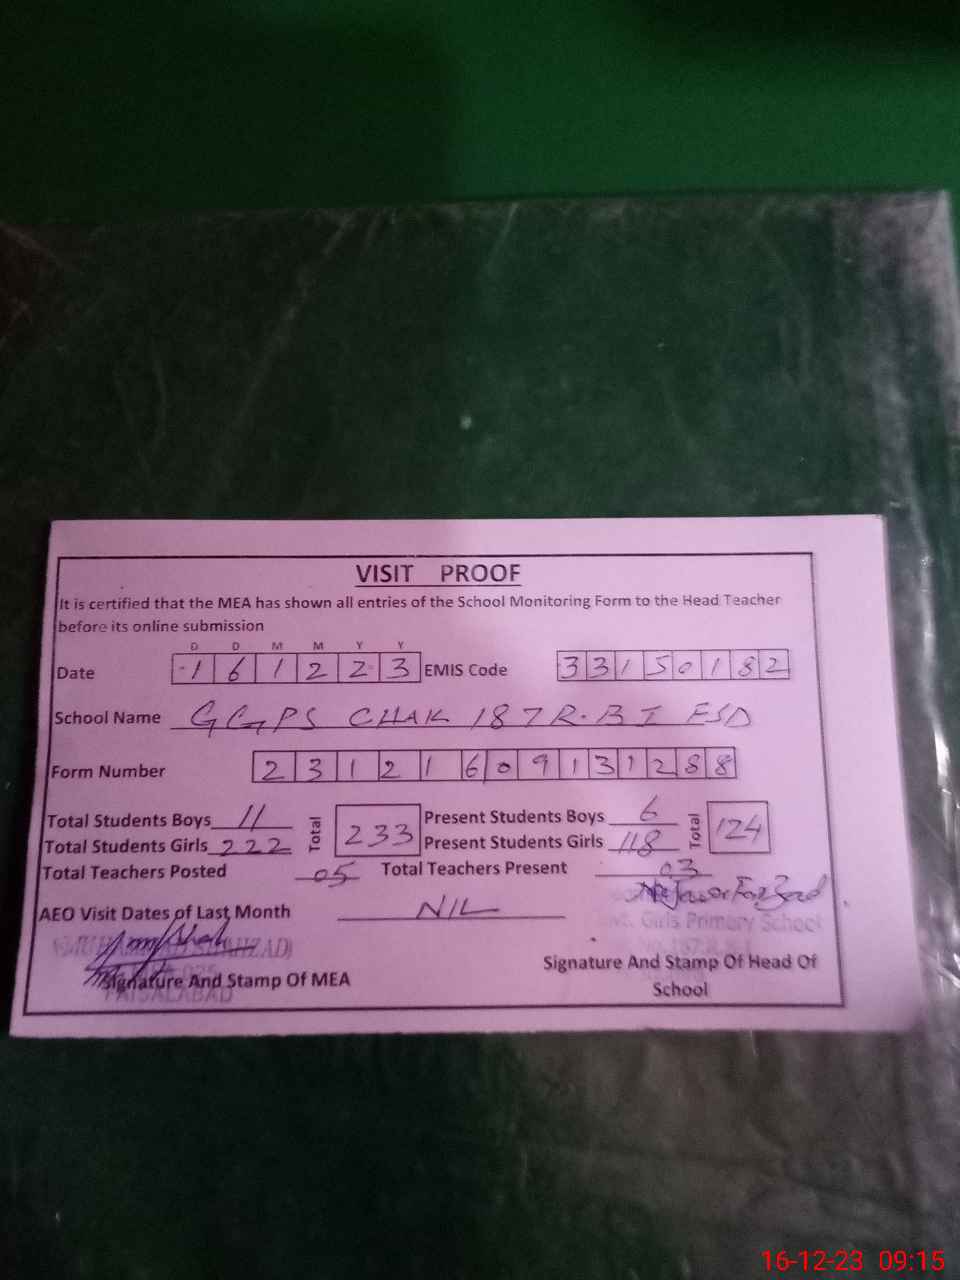 VISIT PROOF
It is certified that the MEA has shown all entries of the School Monitoring Form to the Head Teacher
before its online submission
D D M M Y Y
Date 1 6 1 2 2 3 EMIS Code 3 3 1 5 0 1 8 2
School Name GGPS CHAK 187 R.B I FSD
Form Number 2 3 1 2 1 6 0 9 1 3 1 2 8 8
Total Students Boys 11 Total 233 Present Students Boys 6 Total 124
Total Students Girls 222 Present Students Girls 118
Total Teachers Posted 05 Total Teachers Present 03
AEO Visit Dates of Last Month NIL
Girls Primary School
Signature And Stamp Of MEA
FAISALABAD
Signature And Stamp Of Head Of
School
16-12-23 09:15